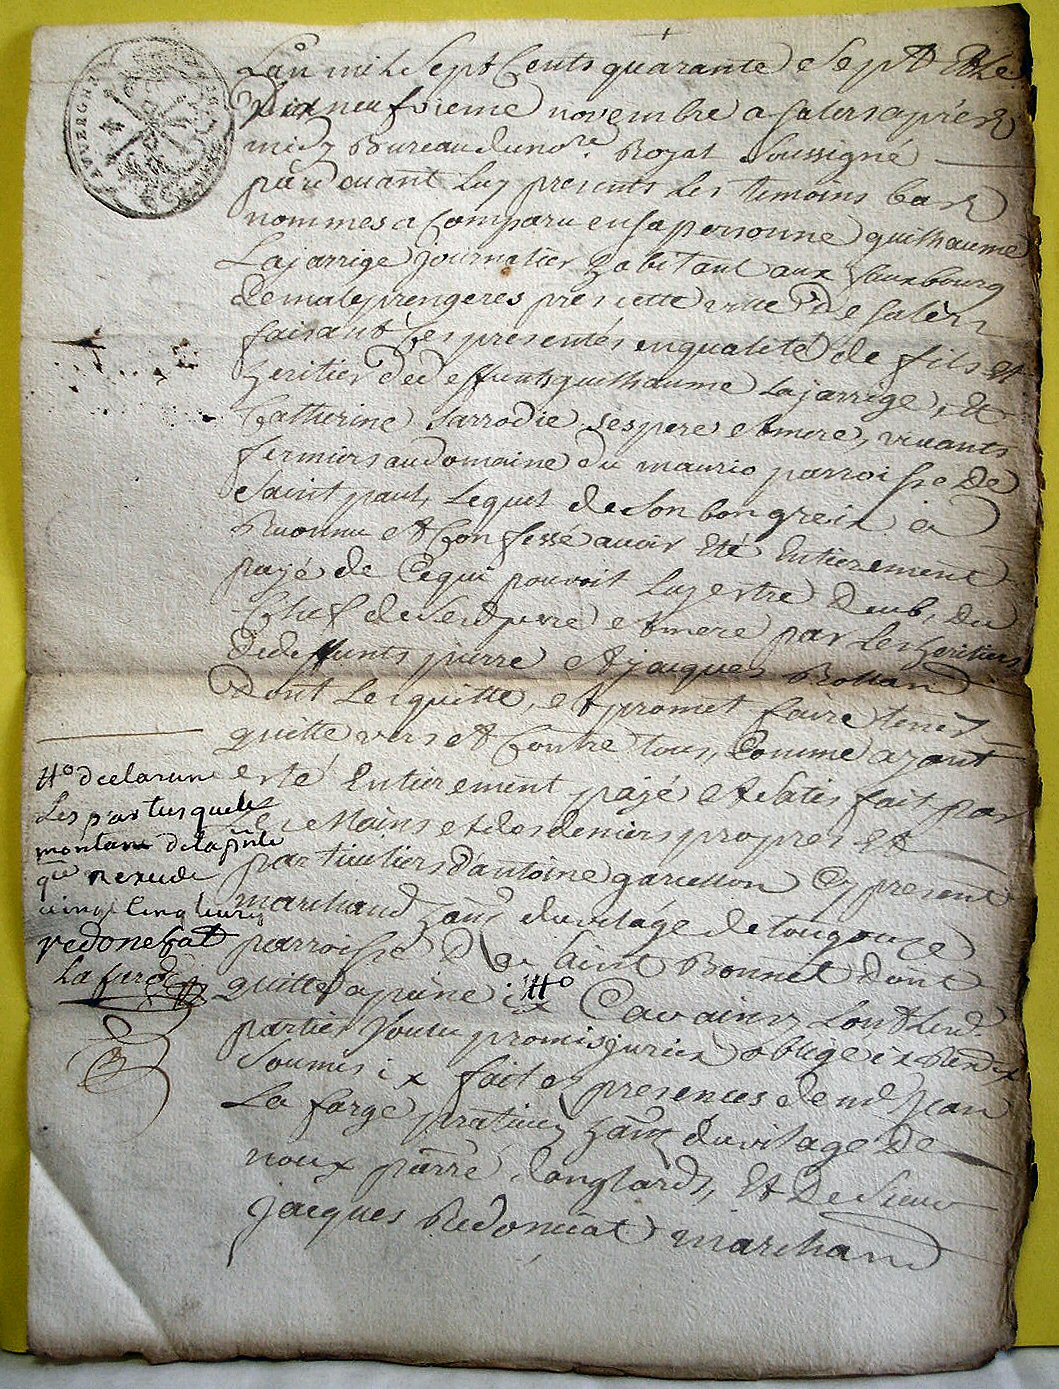 AUVERGNE
L'an mil Sept Cents quarante e Sept Et Le
Dixneufvieme novembre a Salers aprés
midy Bureau du nore. Royal Soussigné
pardevant Luy presents Les temoins bas
nommes a Comparu en sa personne guilhaume
Lajarrige journalier habitant aux fauxbourg
De maleprengeres pres cette ville de Salers
faisant Les presentes en qualité de fils et
heritier de deffunts guilhaume Lajarrige, et
Catherine Sarrodie, ses pere et mere, vivants
fermiers au domaine du maurio parroisse de
Saint paul, Lequel de son bon gre a
Reconnu et Confessé avoir Eté Entierement
payé de Ce qui pouvoit Luy estre Deub, du
Chef de Sesd. pere et mere par Les heritiers
De deffunts pierre et jacques Rolland
Dont Les quitte, et promet faire tenir
quitte vers et Contre tous, Comme ayant
esté Entierement payé et satisfait par
Les Mains et des deniers propres et
particuliers d'antoine garcelon Cy present
marchand hant du vilage de tougouze
parroisse De Saint Bonnet dont
quitte a peine ix Ho Ca vainy Lont Lesd.
parties voulu promis jurées obligé ix
Soumis ix fait es presences de me Jean
La farge praticien hant du vilage de
noux parre d'anglards, Et De Sieur
Jacques Redonnat marchand
Ho declarant
Les parties que le
montant de la pnte
que nexcede
cinq livres
redonat
Lafarge